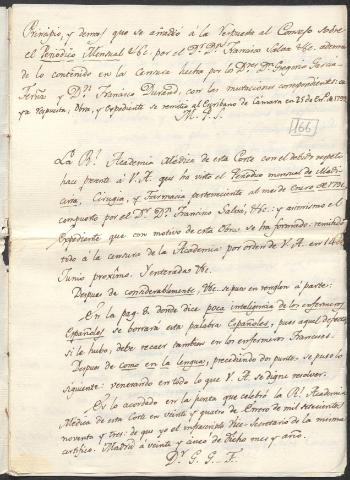 Principio, y demas que se añadió à la Respuesta al Consejo sobre
el Periodico Mensual &c. por el Dr. Dn. Francisco Salvà &c. ademas
de lo contenido en la Censura hecha por los Drs. Dn. Gregorio Garcia
Fernz. y Dn. Francisco Durand, con las mutaciones correspondientes: cu-
ya respuesta, Obra, y expediente se remitió al Escribano de Camara en 25 de En.o de 1793.
M. P. S.
166
La Rl. Academia Medica de esta Corte con el debido respeto
hace presente à V. A. que ha visto el Periodico mensual de Medi-
cina, Cirugia, y Farmacia perteneciente al mes de Enero de 1791,
compuesto por el Dr. Dn. Francisco Salvá, &c.: y asimismo el
Expediente que con motivo de esta Obra se ha formado: remitido
todo à la censura de la Academia por orden de V. A. en 14 de
Junio proximo. Y enterada &c.
Despues de considerablemente &c. se puso en renglon à parte:
En la pag. 8 donde dice poca inteligencia de los enfermeros
Españoles se borrará esta palabra Españoles, pues aquel defecto,
si le hubo, debe recaer tambien en los enfermeros Franceses.
Despues de como en la lengua, precediendo dos puntos se puso lo
siguiente: venerando en todo lo que V. A. se digne resolver.
Es lo acordado en la Junta que celebró la Rl. Academia
Medica de esta Corte en veinte y quatro de Enero de mil setecientos
noventa y tres: de que yo el infrascripto Vice-Secretario de la misma
certifico. Madrid à veinte y cinco de dicho mes y año.
Dr. G. G. F.